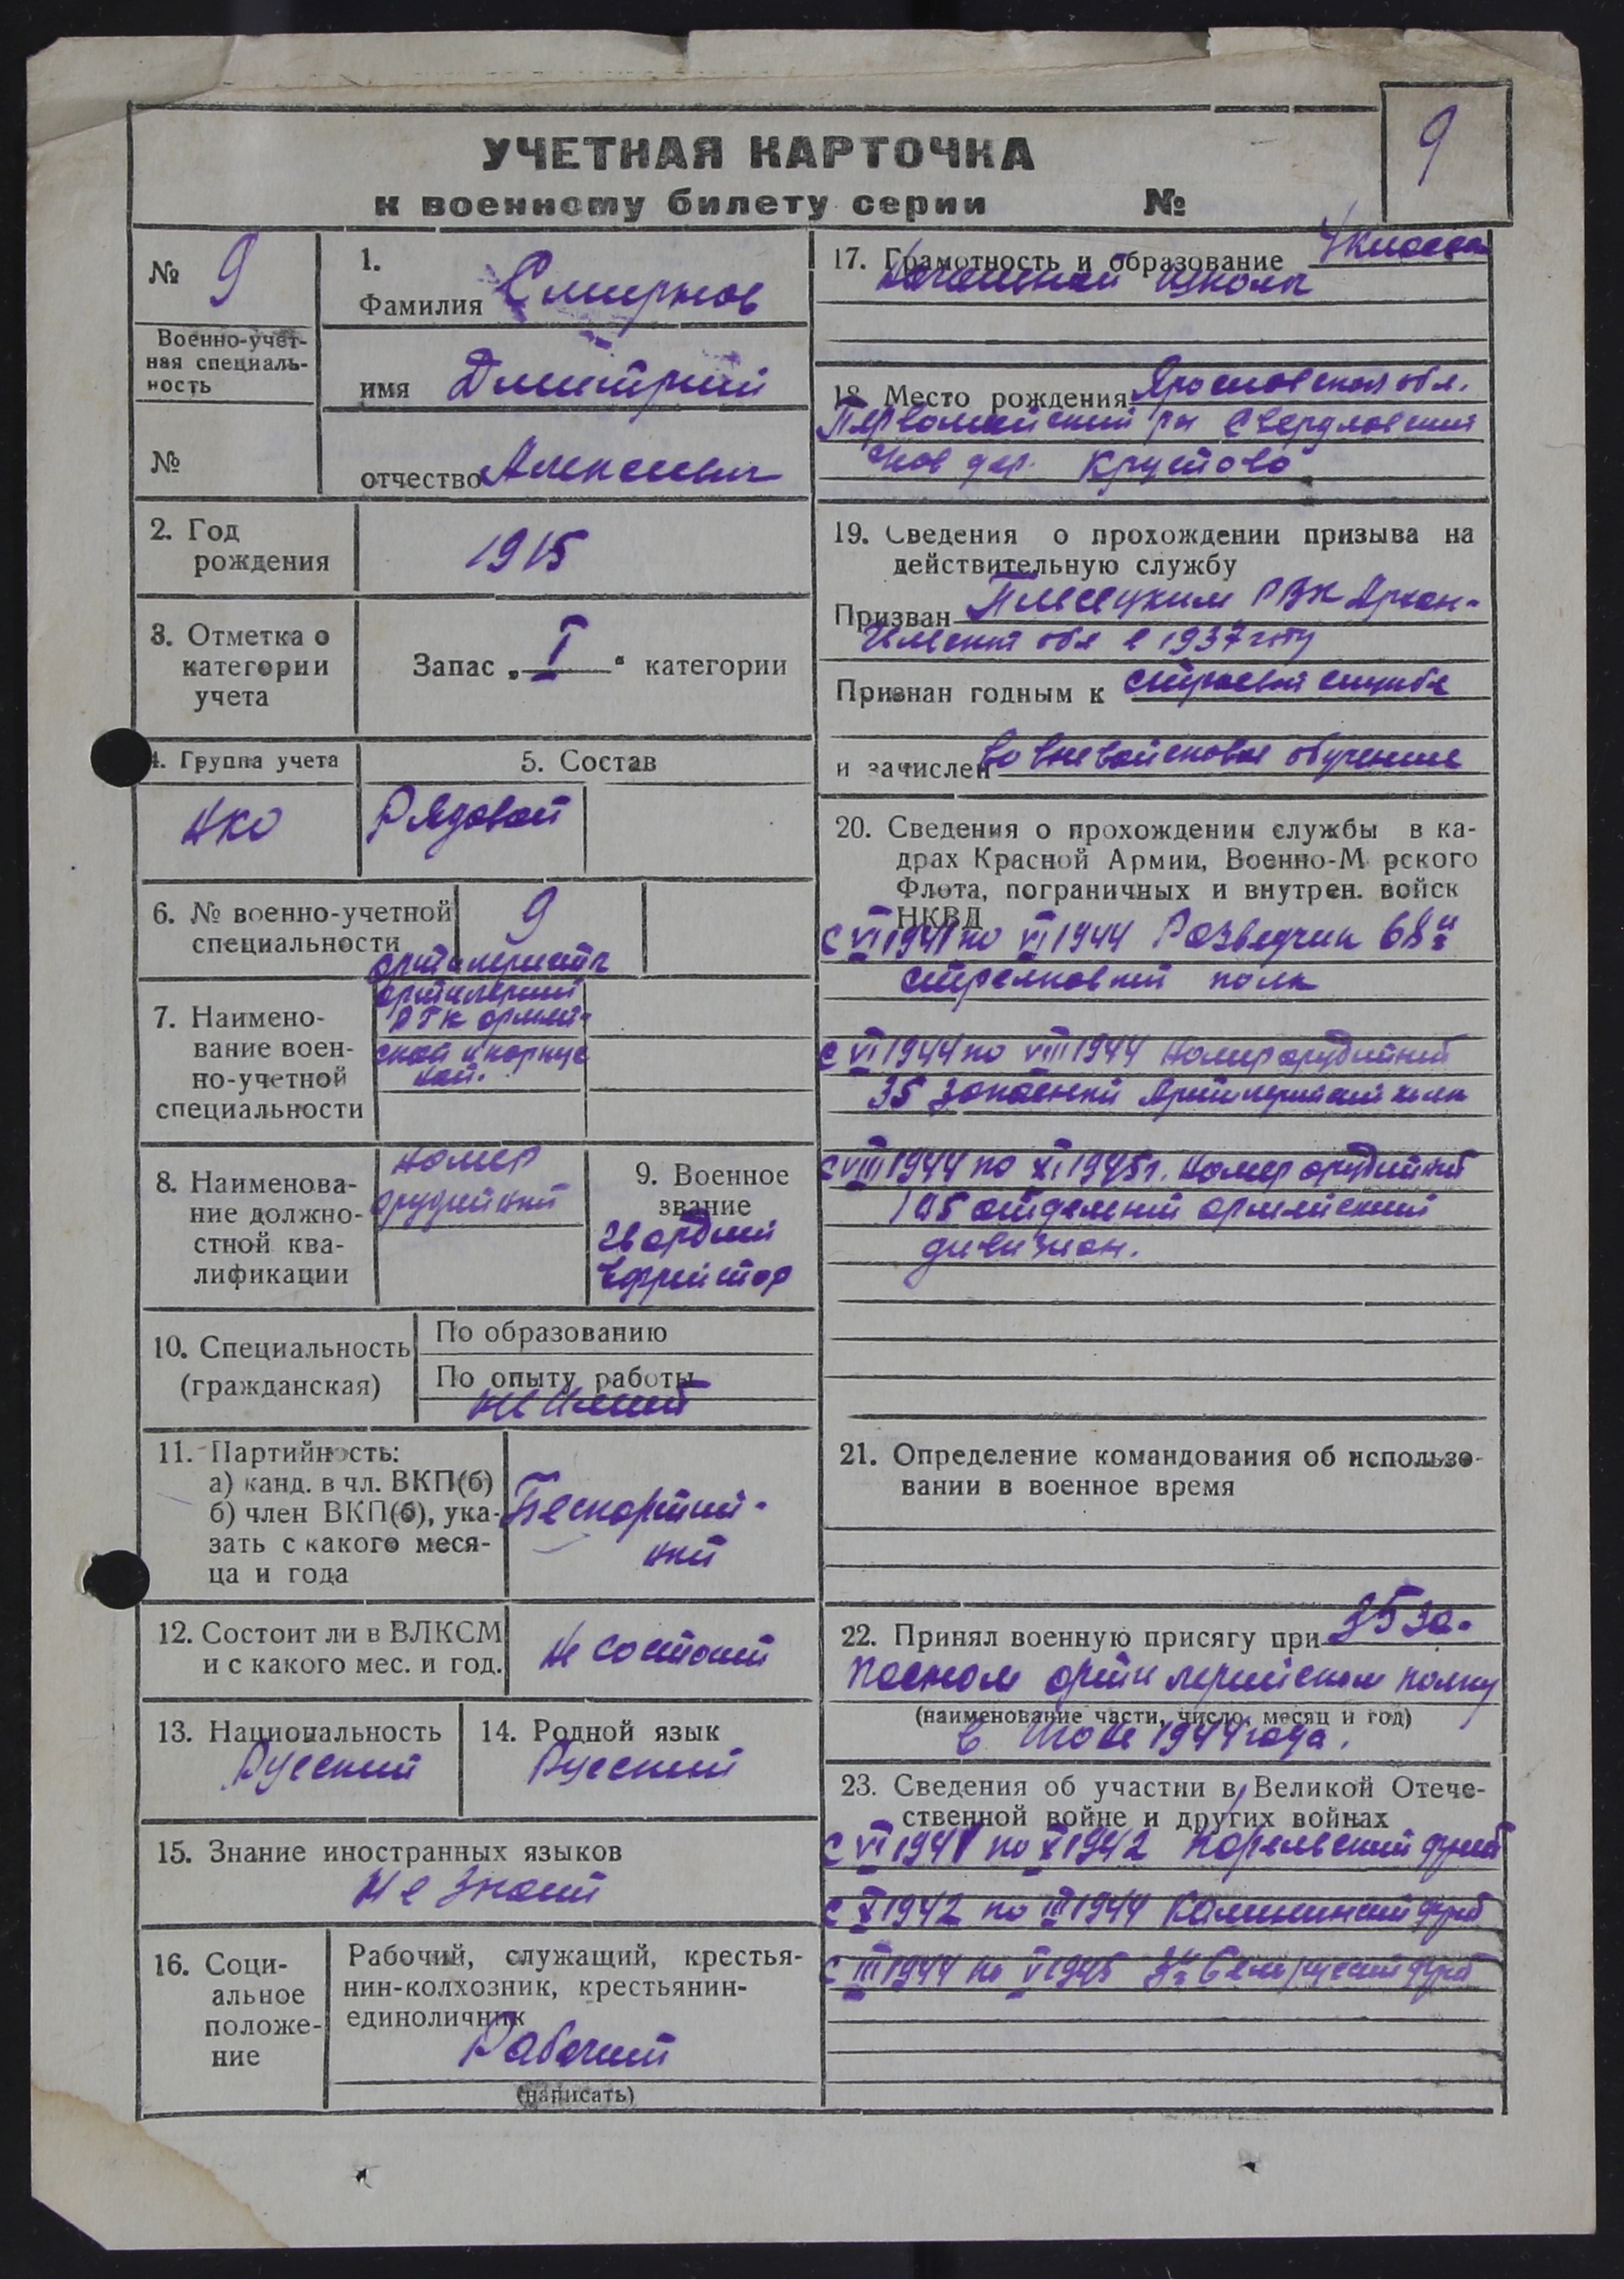 УЧЕТНАЯ КАРТОЧКА
к военному билету серии №
9
№ 9
Военно-учет-
ная специаль-
ность
№
1.
Фамилия Смирнов
имя Дмитрий
отчество Алексеевич
2. Год
рождения
1915
3. Отметка о
категории
учета
Запас „ I “ категории
4. Группа учета
НКО
5. Состав
Рядовой
6. № военно-учетной
специальности
9
7. Наимено-
вание воен-
но-учетной
специальности
артилеристы
артилерии
РГК армей-
ской и корпус
ной.
8. Наименова-
ние должно-
стной ква-
лификации
Номер
орудийный
9. Военное
звание
Гвардии
Ефрейтор
10. Специальность
(гражданская)
По образованию
По опыту работы
11. Партийность:
а) канд. в чл. ВКП(б)
б) член ВКП(б), ука-
зать с какого меся-
ца и года
Беспартий-
ный
12. Состоит ли в ВЛКСМ
и с какого мес. и год.
Не состоит
13. Национальность
Русский
14. Родной язык
Русский
15. Знание иностранных языков
Не знает
16. Соци-
альное
положе-
ние
Рабочий, служащий, крестья-
нин-колхозник, крестьянин-
единоличник
Рабочий
(написать)
17. Грамотность и образование 4 класса
Начальной школы
18. Место рождения Ярославская обл.
Первомайский рн Свердловский
дер. Крутово
19. Сведения о прохождении призыва на
действительную службу
Призван Плесецким РВК Архан-
гельской обл в 1937 году
Признан годным к строевой службе
и зачислен во вневойсковое обучение
20. Сведения о прохождении службы в ка-
драх Красной Армии, Военно-М рского
Флота, пограничных и внутрен. войск
НКВД
С VI 1941 по VI 1944 Разведчик 68й
стрелковый полк
С VI 1944 по VIII 1944 Номер орудийный
35 запасной Артилерийский полк
С VIII 1944 по XI 1945 г. Номер орудийный
отдельный армейский
дивизион.
21. Определение командования об использо-
вании в военное время
22. Принял военную присягу при 35 за-
пасном артилерийском полку
(наименование части, число, месяц и год)
в Июле 1944 года.
23. Сведения об участии в Великой Отече-
ственной войне и других войнах
С VI 1941 по X 1942 Карельский фрнт
С X 1942 по III 1944 Калининский фрнт
С III 1944 по V 1945 3й Беларусский фрнт